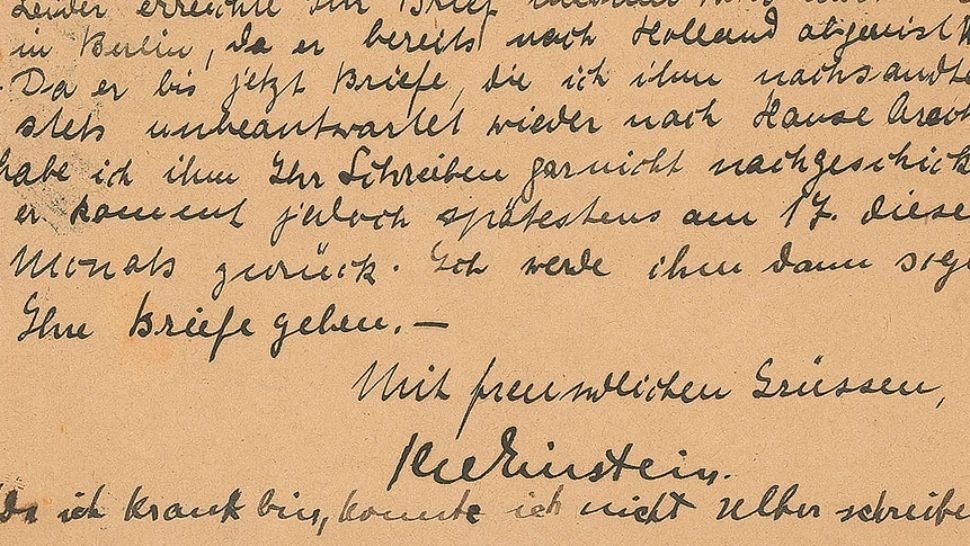 Leider erreichte Ihr Brief meinen
in Berlin, da er bereits nach Holland abgereist
Da er bis jetzt Briefe, die ich ihm nachsandte
stets unbeantwortet wieder nach Hause
habe ich ihm Ihr Schreiben garnicht nachgeschick
er kommt jedoch spätestens am 17. diese
Monats zurück. Ich werde ihm dann
Ihre Briefe geben. —
Mit freundlichen Grüssen,
Einstein.
Da ich krank bin, konnte ich nicht selber schreibe